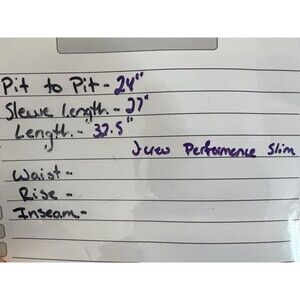 Pit to Pit - 24"
Sleeve Length - 27"
Length - 32.5"
Jcrew Performance Slim
Waist -
Rise -
Inseam -